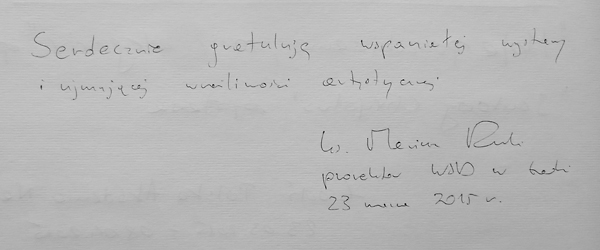 Serdecznie gratuluję wspaniałej wystawy
i ujmującej wrażliwości artystycznej
ks. Marian
prorektor WSD w Łodzi
23 marca 2015 r.